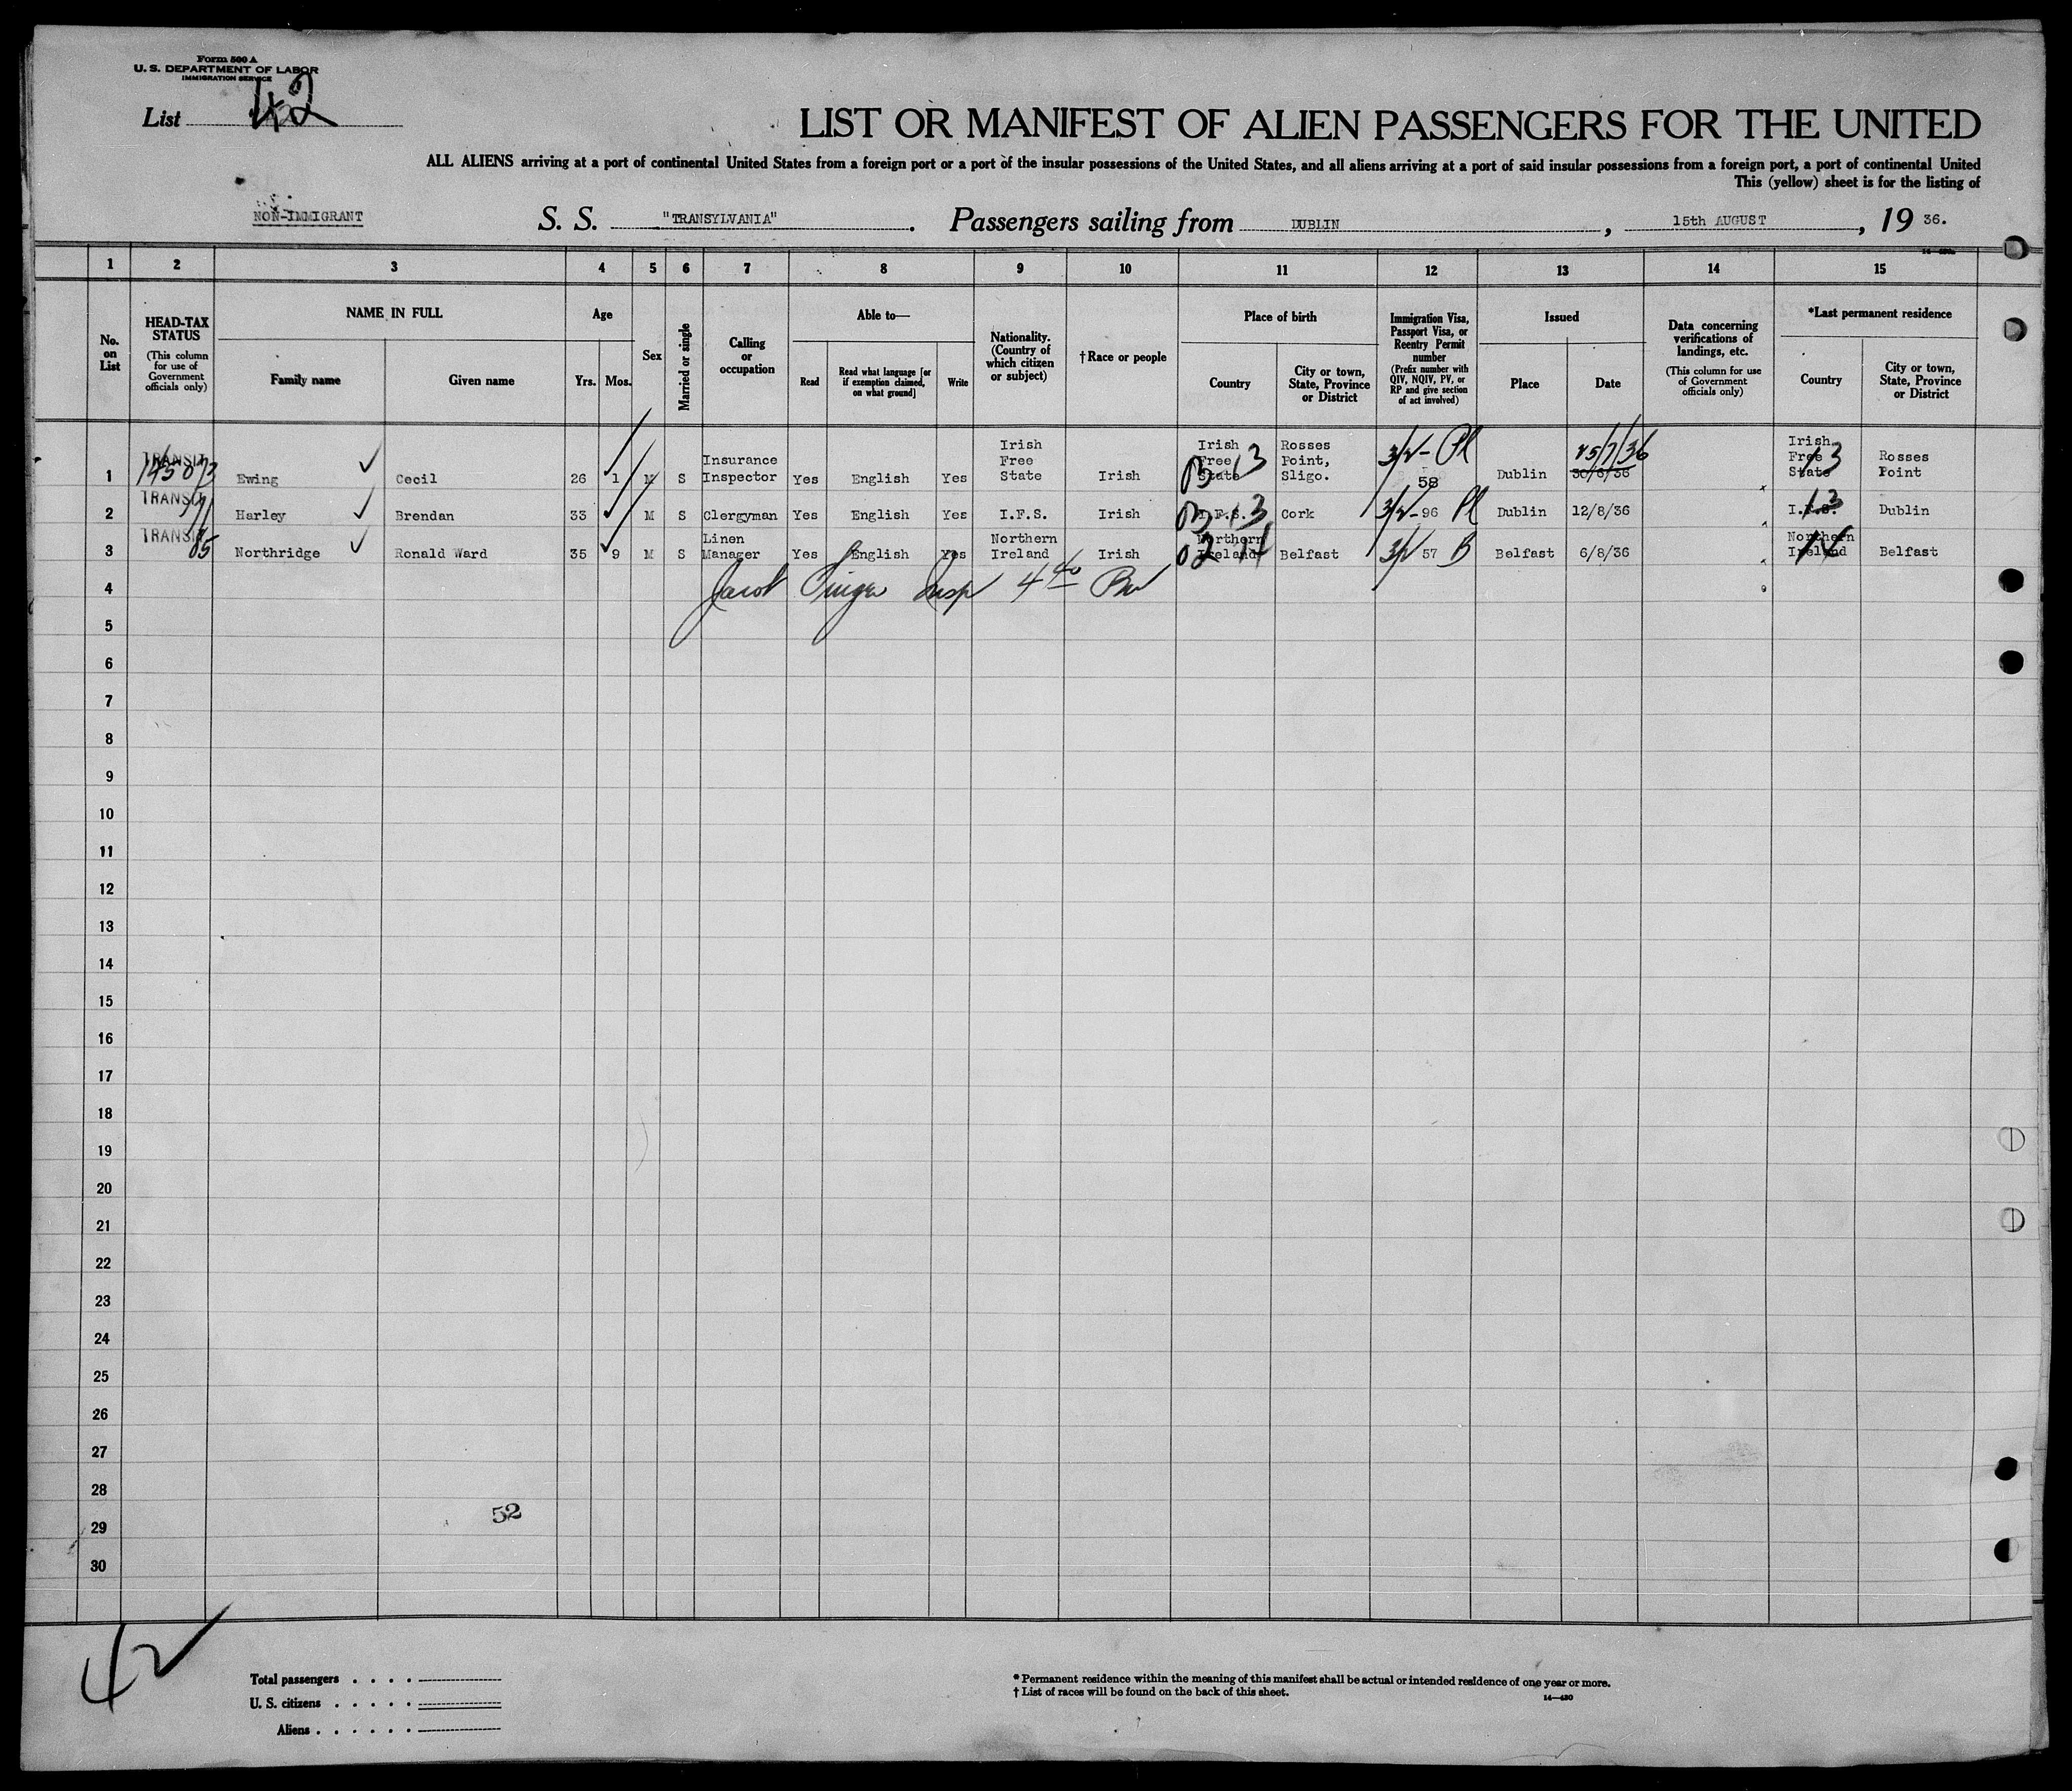 Form 500 A
U. S. DEPARTMENT OF LABOR
IMMIGRATION SERVICE
List 42
LIST OR MANIFEST OF ALIEN PASSENGERS FOR THE UNITED
ALL ALIENS arriving at a port of continental United States from a foreign port or a port of the insular possessions of the United States, and all aliens arriving at a port of said insular possessions from a foreign port, a port of continental United
This (yellow) sheet is for the listing of
NON-IMMIGRANT S. S. "TRANSYLVANIA". Passengers sailing from DUBLIN, 15th AUGUST, 19 36.
1 2 3 4 5 6 7 8 9 10 11 12 13 14 15
No. on List
HEAD-TAX STATUS
(This column for use of Government officials only)
NAME IN FULL
Family name Given name
Age
Yrs. Mos.
Sex
Married or single
Calling or occupation
Able to—
Read Read what language [or if exemption claimed, on what ground] Write
Nationality. (Country of which citizen or subject)
† Race or people
Place of birth
Country City or town, State, Province or District
Immigration Visa, Passport Visa, or Reentry Permit number
(Prefix number with QIV, NQIV, PV, or RP and give section of act involved)
Issued
Place Date
Data concerning verifications of landings, etc.
(This column for use of Government officials only)
*Last permanent residence
Country City or town, State, Province or District
1 TRANSIT Ewing Cecil 26 1 M S Insurance Inspector Yes English Yes Irish Free State Irish Irish Free State Rosses Point, Sligo. 3/2- Pl 58 Dublin 30/6/36 25/7/36 Irish Free State Rosses Point
2 TRANSIT Harley Brendan 33 M S Clergyman Yes English Yes I.F.S. Irish I.F.S. Cork 3/2-96 Pl Dublin 12/8/36 I.F.S. Dublin
3 TRANSIT Northridge Ronald Ward 35 9 M S Linen Manager Yes English Yes Northern Ireland Irish Northern Ireland Belfast 3/2 57 B Belfast 6/8/36 Northern Ireland Belfast
4 Insp 4 40
5
6
7
8
9
10
11
12
13
14
15
16
17
18
19
20
21
22
23
24
25
26
27
28
52
29
30
42
Total passengers . . . .
U. S. citizens . . . . .
Aliens . . . . . .
* Permanent residence within the meaning of this manifest shall be actual or intended residence of one year or more.
† List of races will be found on the back of this sheet.
14—430